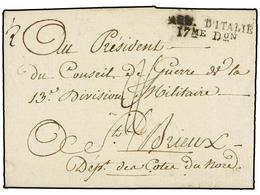 ARM. D'ITALIE
17ME DON
Au Président
du Conseil de Guerre de la
13e Division Militaire
A St Brieux
Dépt des Cotes du Nord